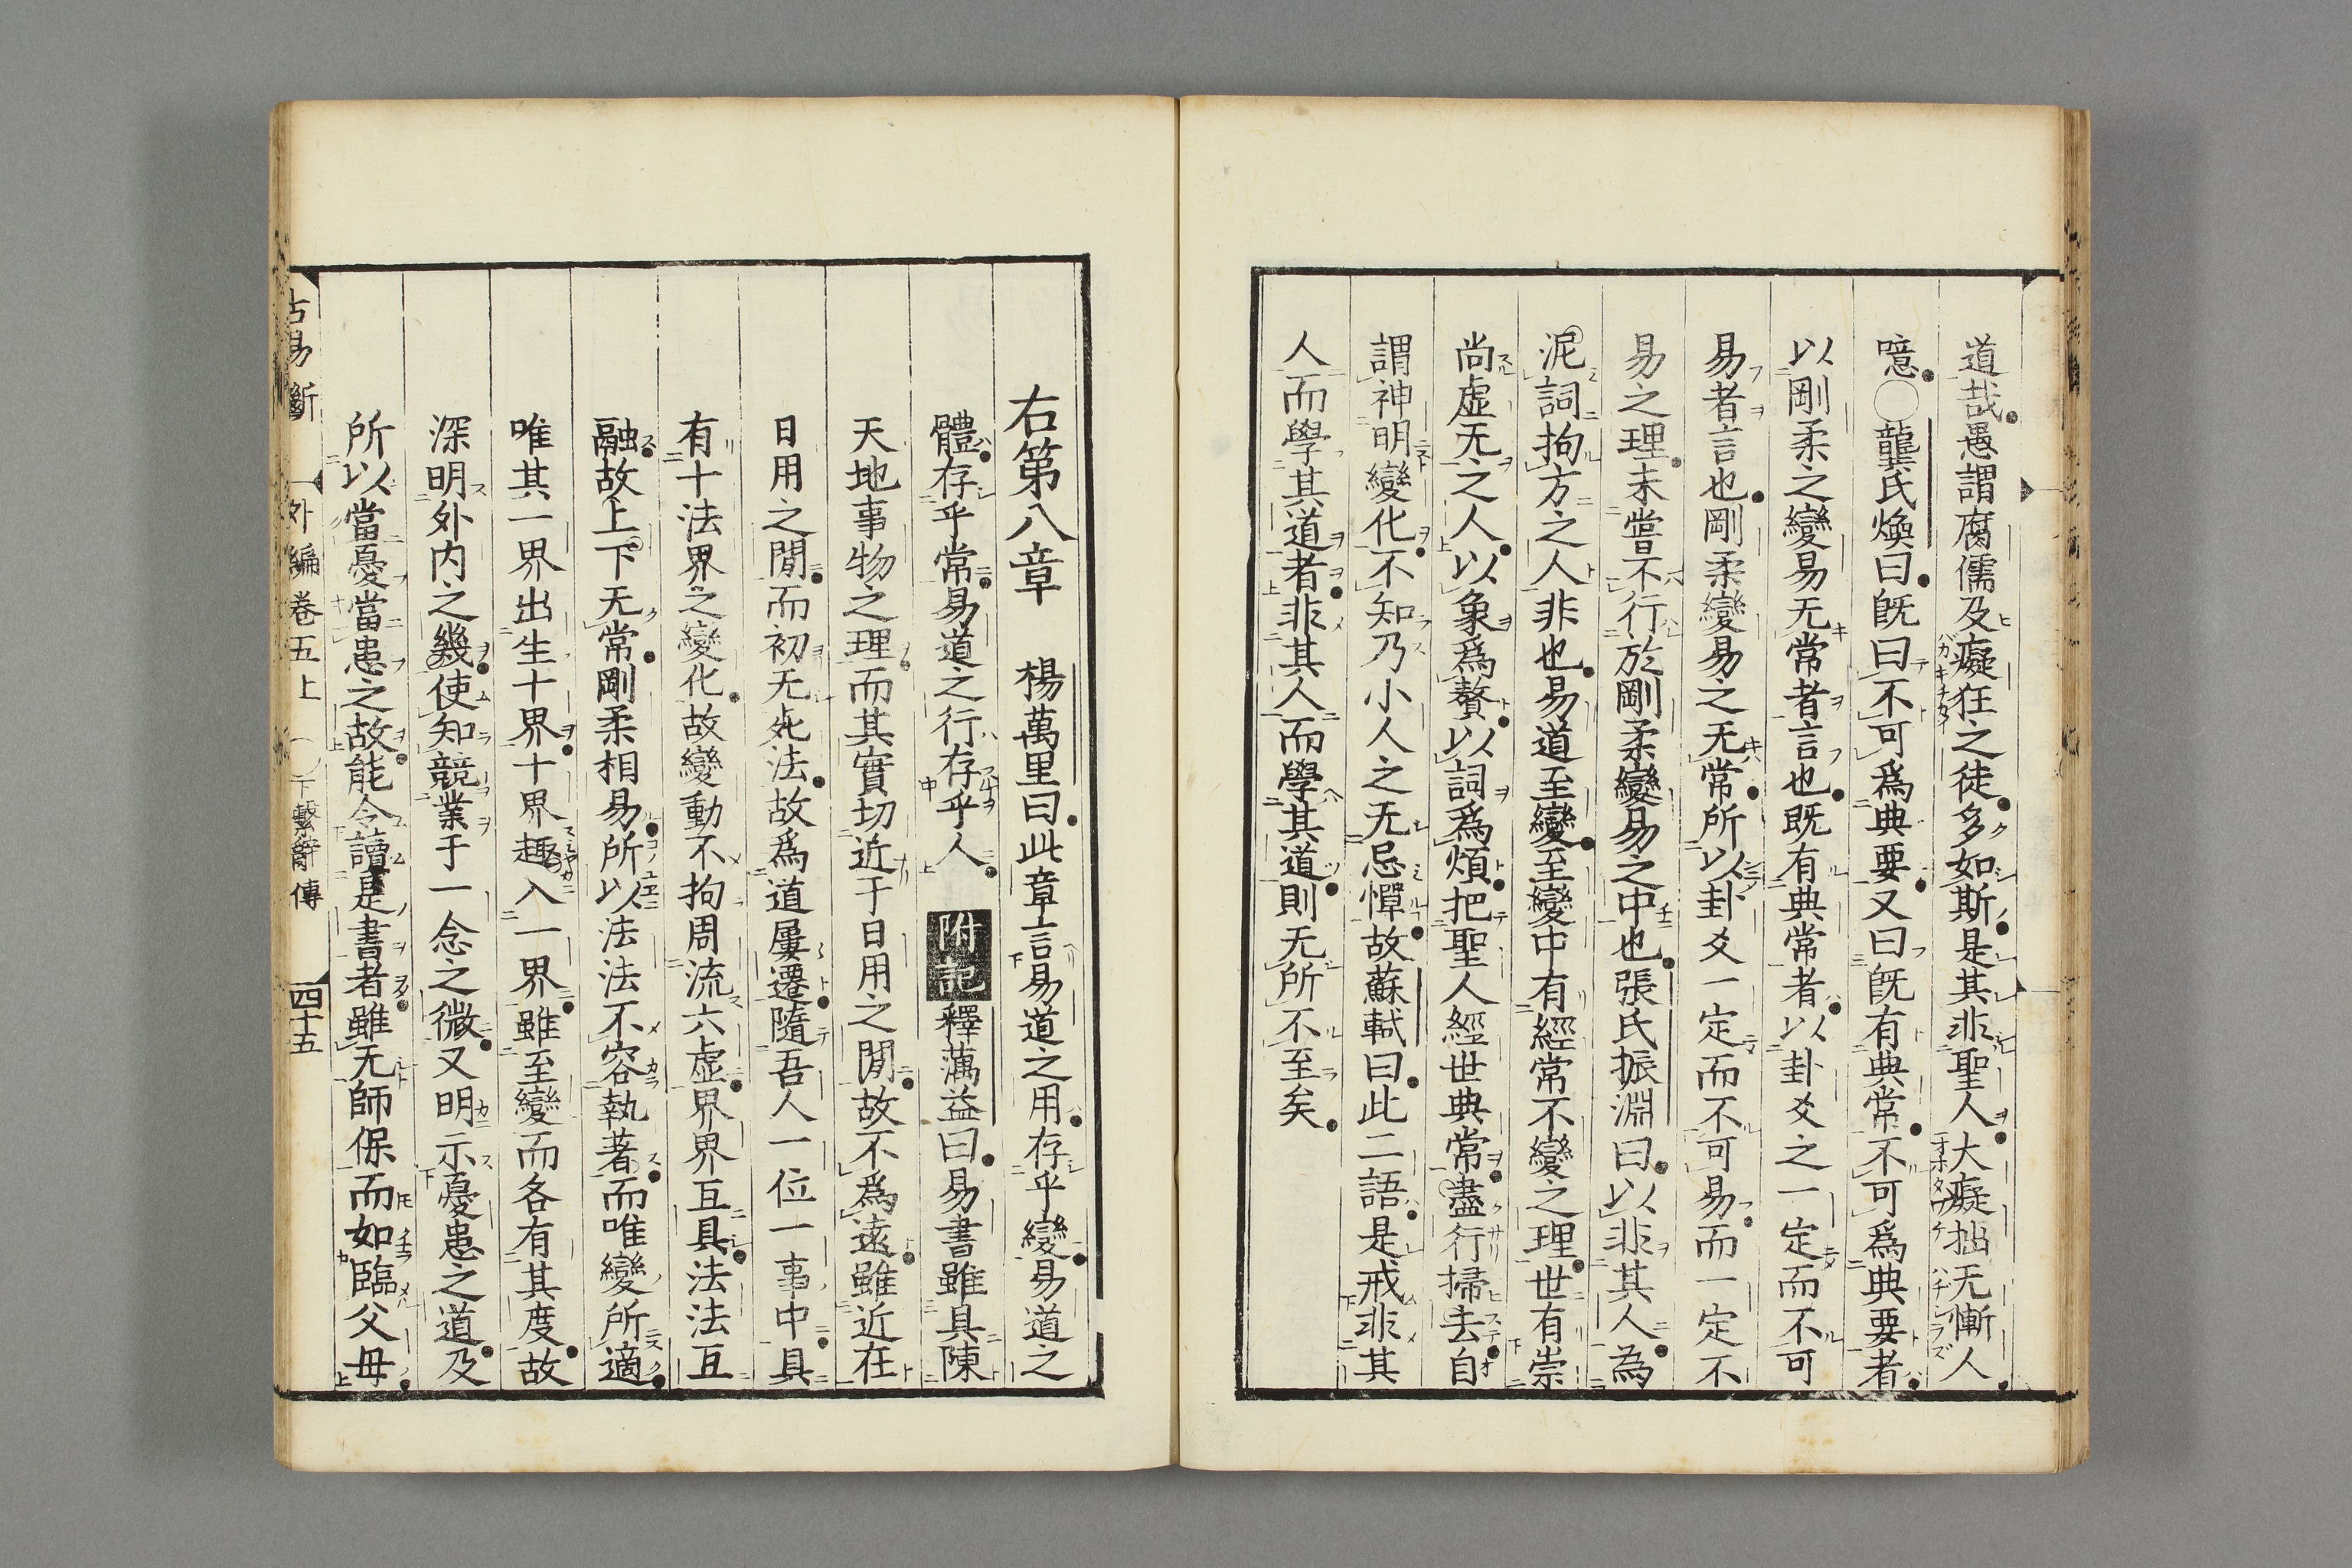 道哉愚謂腐儒及癡狂之徒多如斯是其非聖人大癡拙无慚人
噫○龔氏煥曰旣曰不可爲典要又曰旣有典常不可爲典要者
以剛柔之變易无常者言也既有典常者以卦爻之一定而不可
易者言也剛柔變易之无常所以卦爻一定而不可易而一定不
易之理未嘗不行於剛柔變易之中也張氏振淵曰以非其人為
泥詞拘方之人非也易道至變至變中有經常不變之理世有崇
尚虛无之人以象爲贅以詞爲煩把聖人經世典常盡行掃去自
謂神明變化不知乃小人之无忌憚故蘇軾曰此二語是戒非其
人而學其道者非其人而學其道則无所不至矣
右第八章　楊萬里曰此章言易道之用存乎變易道之
體存乎常易道之行存乎人　附記釋蕅益曰易書雖具陳
天地事物之理而其實切近于日用之閒故不爲遠雖近在
日用之閒而初无死法故爲道屢遷隨吾人一位一事中具
有十法界之變化故變動不拘周流六虛界界互具法法互
融故上下无常剛柔相易所以法法不容執著而唯變所適
唯其一界出生十界十界趣入一界雖至變而各有其度故
深明外内之幾使知競業于一念之微又明示憂患之道及
所以當憂當患之故能令讀是書者雖无師保而如臨父母
古易斷　外編卷五上　下繫辭傳　四十五